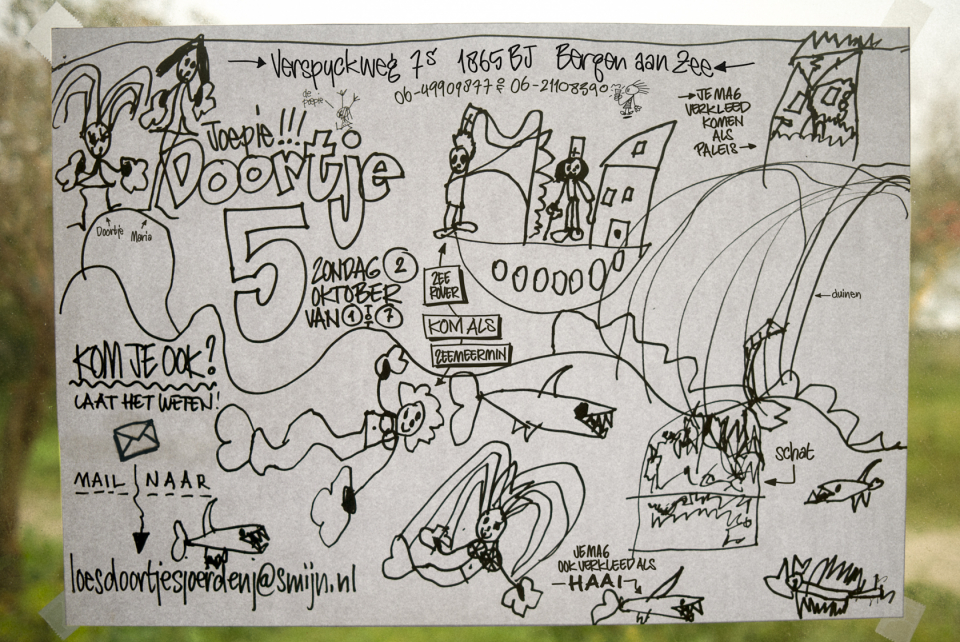 Verspyckweg 7s 1865 BJ Bergen aan Zee
06-49909877 & 06-21108390
JE MAG
VERKLEED
KOMEN
ALS
PALEIS
de
Joepie!!!
Doortje
5
Doortje
Maria
ZONDAG 2
OKTOBER
VAN 1 TOT 7
ZEE
ROVER
KOM ALS
ZEEMEERMIN
duinen
KOM JE OOK?
LAAT HET WETEN!
MAIL NAAR
loesdoortjesjoerdenj@smijn.nl
schat
JE MAG
OOK VERKLEED ALS
HAAI